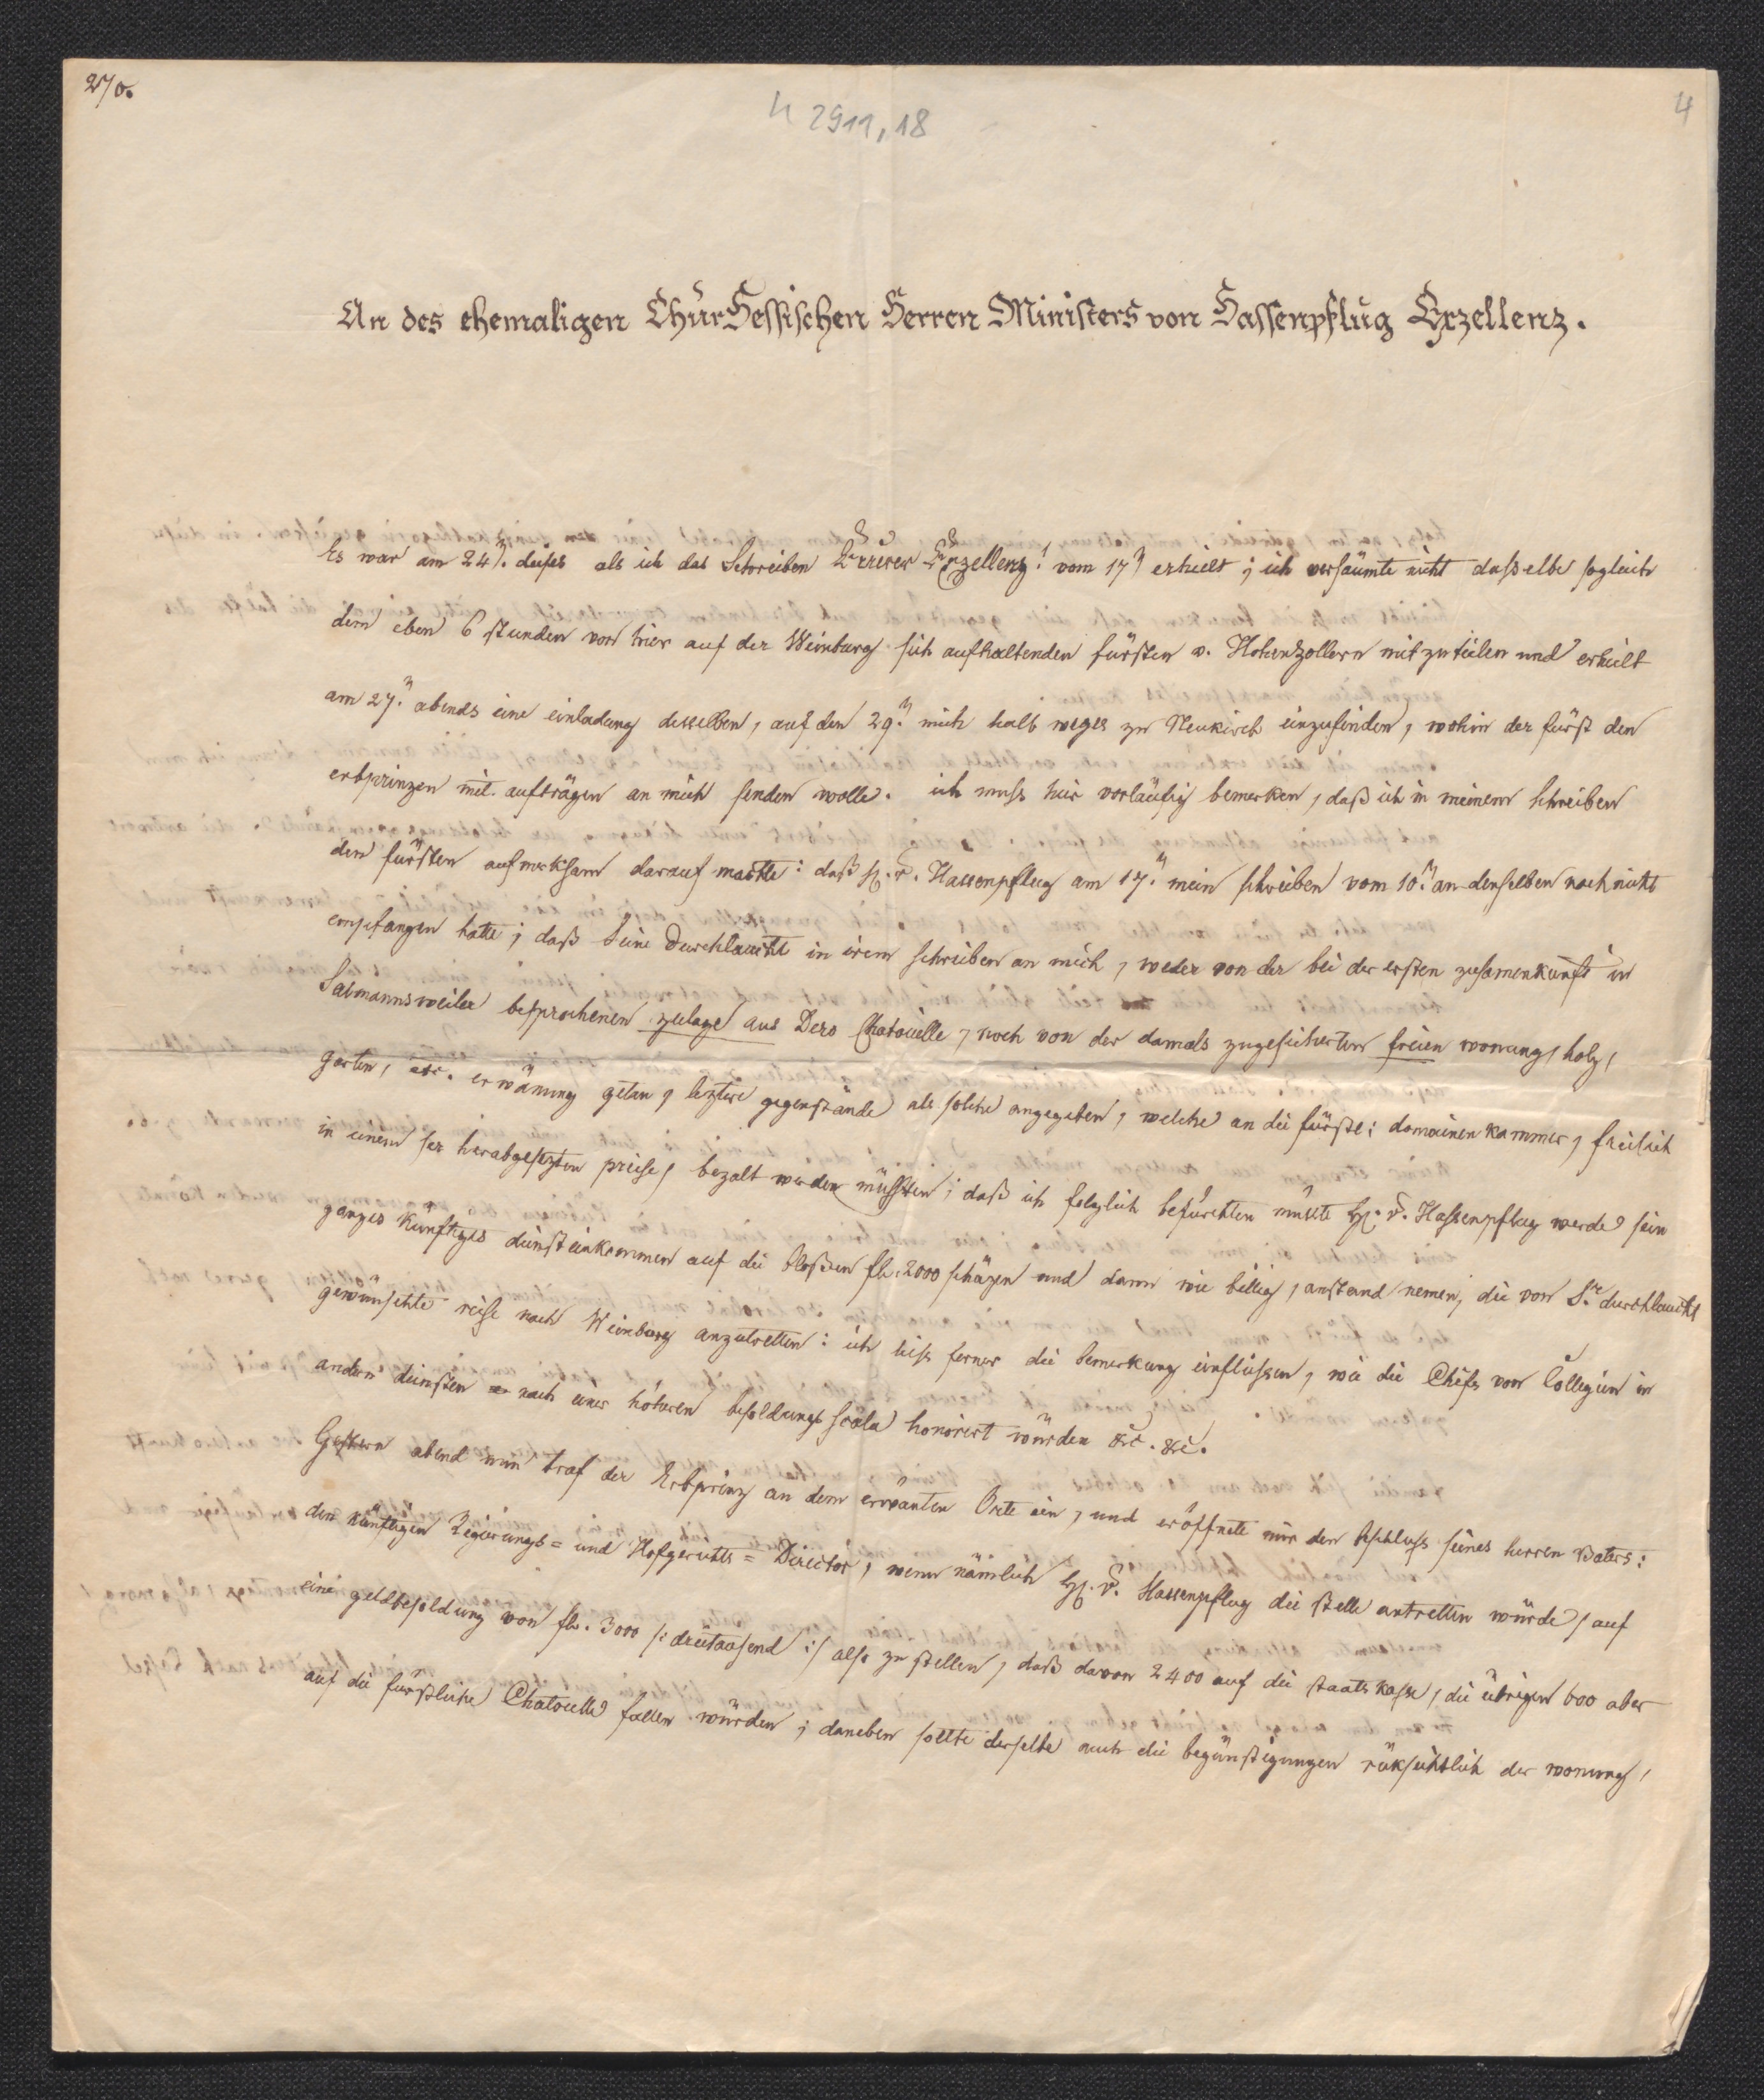 270.
h 2911,18
4
An des ehemaligen ChurHessischen Herren Ministers von Hassenpflug Exzellenz.
Es war am 24n. dieses als ich das Schreiben Eurer Exzellenz! vom 17n erhielt; ich versäumte nicht dasselbe sogleich
dem eben 6 stunden von hier auf der Weinburg sich aufhaltenden fürsten v. Hohenzollern mitzuteilen und erhielt
am 27n. abends eine einladung desselben, auf den 29n. mich halb weges zu Neukirch einzufinden, wohin der fürst den
erbprinzen mit aufträgen an mich senden wolle. ich muss hier vorläufig bemerken, daß ich in meinem schreiben
den fürsten aufmerksam darauf machte: daß H. v. Hassenpflug am 17n. mein schreiben vom 10n. an denselben noch nicht
empfangen hatte; daß Seine Durchlaucht in irem schreiben an mich, weder von der bei der ersten zusamenkunft in
Salmannsweiler besprochenen zulage aus Dero Chatouille, noch von der damals zugesicherten freien wonung, holz,
garten, etc. erwänung getan, leztere gegenstände als solche angegeben, welche an die fürstl: domainenkammer, freilich
in einem ser herabgesezten preise, bezalt werden müssten; daß ich folglich befürchten müsste H. v. Hassenpflug werde sein
ganzes künftiges diensteinkommen auf die bloßen fl. 2000 schäzen und dann wie billig, anstand nemen, die von Sr. durchlaucht
gewünschte reise nach Weinburg anzutretten: ich liess ferner die bemerkung einfliessen, wie die Chefs von Collegien in
andern diensten nach einer höheren besoldungs scala honorirt würden &c. &c.
Gestern abend nun traf der Erbprinz an dem erwänten Orte ein, und eröffnete mir den beschluss seines herren Vaters:
den künftigen Regierungs= und Hofgerichts=Director, wenn nämlich H. v. Hassenpflug die stelle antretten würde, auf
eine geldbesoldung von fl. 3000 /: dreitausend :/ also zu stellen, daß davon 2400 auf die staats kasse, die übrigen 600 aber
auf die fürstliche Chatouille fallen würden; daneben sollte derselbe auch die begünstigungen rüksichtlich der wonung,